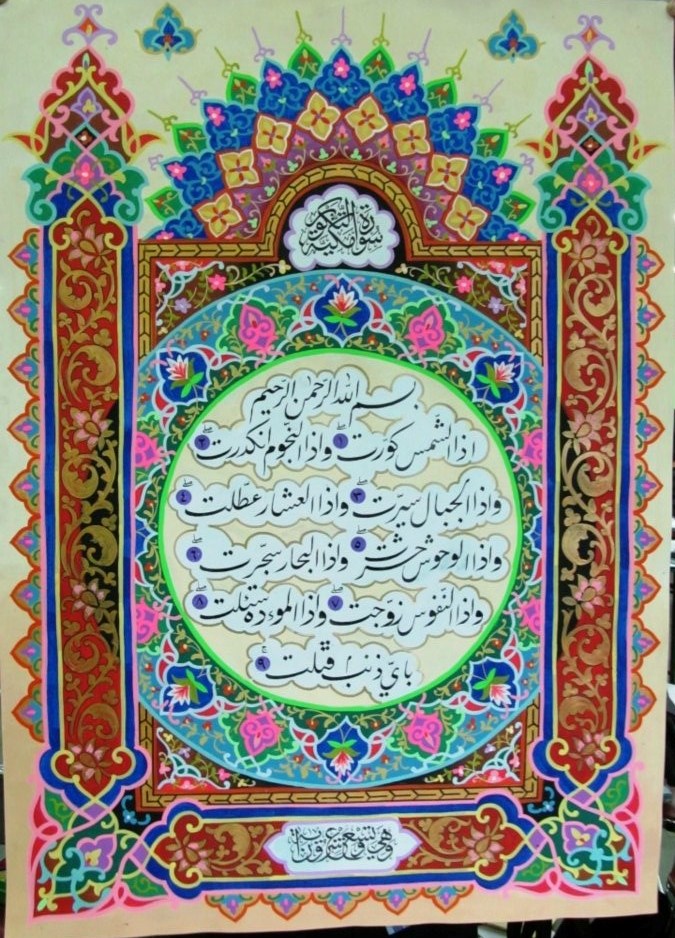 سورة التكوير مكية
بسم الله الرّحمن الرّحيم
اذا الشّمس كوّرت ١ واذا النّجوم انكدرت ٢
واذا الجبال سيّرت ٣ واذا العشار عطّلت ٤
واذا الوحوش حشرت ٥ واذا البحار سجّرت ٦
واذا النّفوس زوّجت ٧ واذا الموءدة سئلت ٨
بايّ ذنب قتلت ٩
وهي تسع وعشرون اية